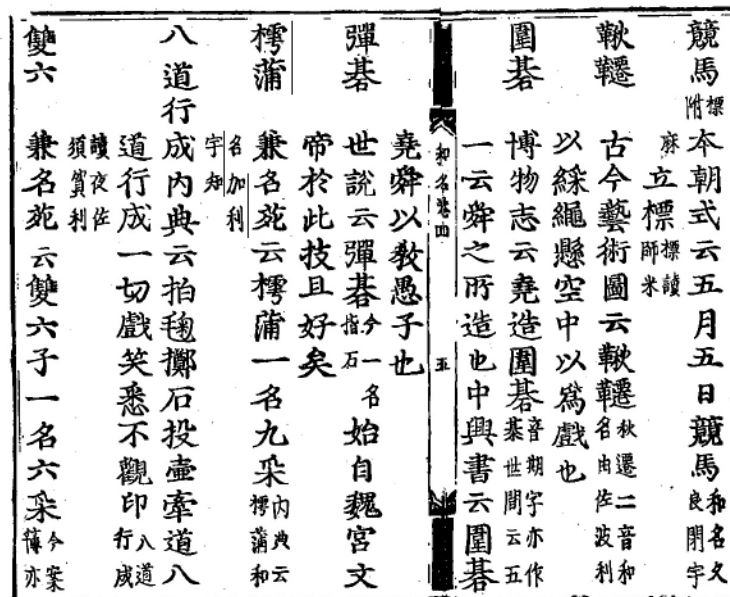 競馬標附夲朝式云五月五日競馬和名久良閇宇
麻立標標讀師米
鞦韆古今藝術圖云鞦韆秋遷二音和名由佐波利
以綵繩懸空中以爲戲也
圍碁博物志云堯造圍碁音期字亦作棊世間云五
一云舜之所造也中興書云圍碁
和名卷四 五
堯舜以敎愚子也
彈碁世說云彈碁今一名指石始自魏宮文
帝於此技且好矣
樗蒲兼名苑云樗蒲一名九采內典云樗蒲和
名加利宇知
八道行成內典云拍毱擲石投壺牽道八
道行成一切戲笑悉不觀印八道行成
讀夜佐須賀利
雙六兼名苑云雙六子一名六采今案簙亦